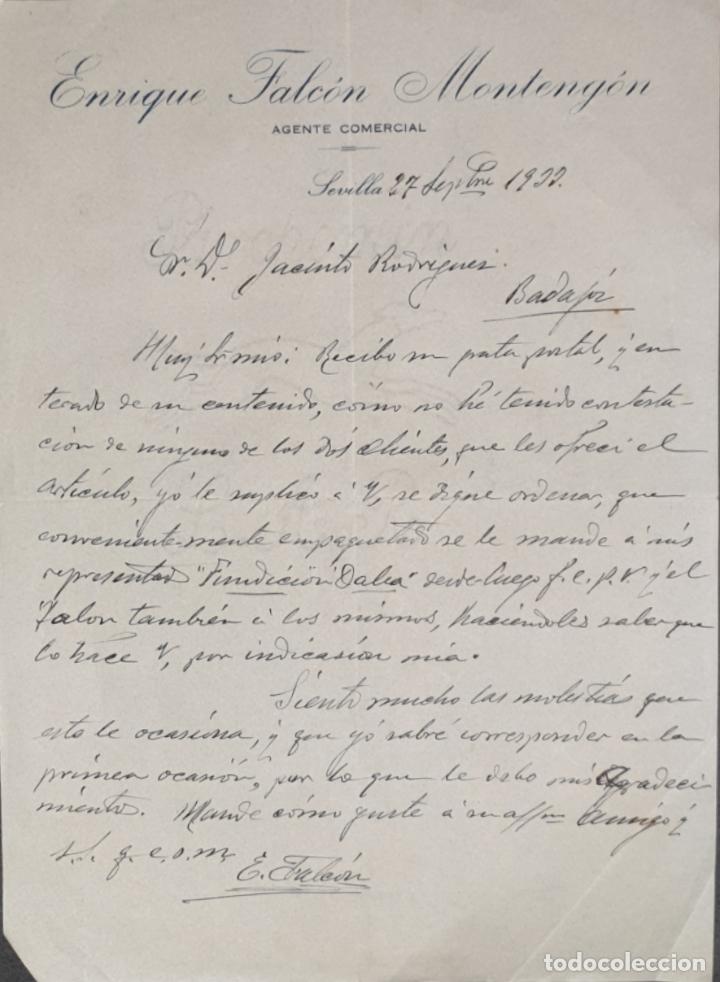 Enrique Falcón Montengón
AGENTE COMERCIAL
Sevilla 27 Sepbre 1933.
Sr. D. Jacinto Rodriguez.
Badajóz
Muy Sr mio: Recibo su grata postal, y en
terado de su contenido, cómo no hé tenido contesta-
ción de ninguno de los dós clientes, que les ofrecí el
artículo, yó le suplicó á V, se digne ordenar, que
conveniente-mente empaquetado se le mande á mis
representad "Fundición Dalia" desde luego f.c. p.v. y el
Talon también á los mismos, haciéndoles saber que
lo hace V, por indicasión mia.
Siento mucho las molestiás que
esto le ocasiona, y que yó sabré corresponder en la
primera ocasión, por lo que le debo mis agradeci
mientos. Mande cómo guste á su affmo amigo y
s.s. q.e.s.m
E. Falcón
todocoleccion
todocoleccion.net